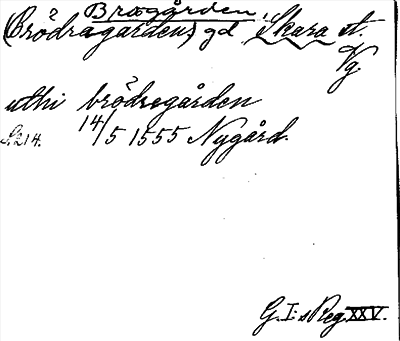 Brogården
(Brödragården) gd i Skara st.
Vg.
uthi brödregården
S. 214. 14/5 1555 Nygård.
G. I:s Reg. XXV.